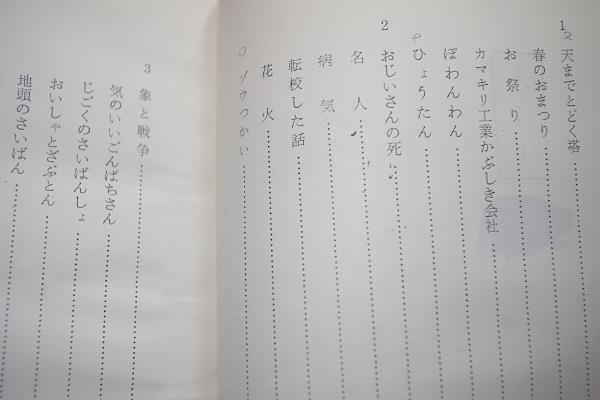 1
天までとどく塔
春のおまつり
お祭り
カマキリ工業かぶしき会社
ぽわんわん
ひょうたん
2
おじいさんの死
名人
病気
転校した話
花火
ゾウつかい
3
象と戦争
気のいいごんぱちさん
じごくのさいばんしょ
おいしゃとざぶとん
地頭のさいばん